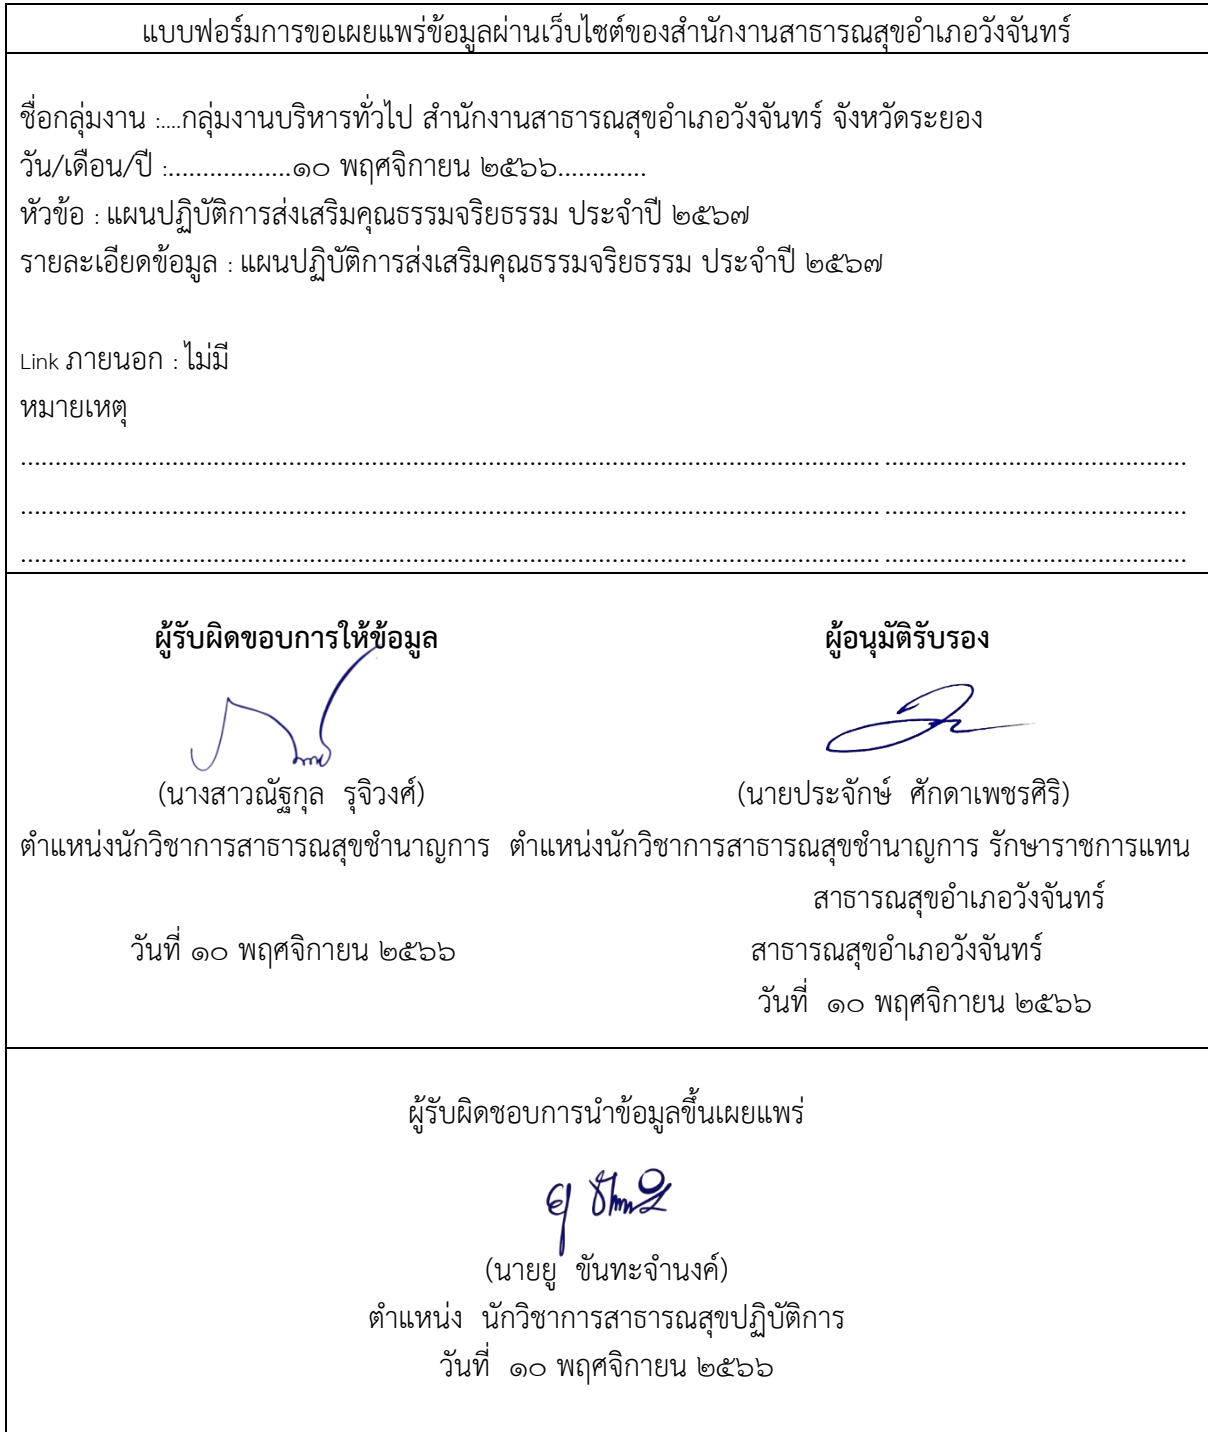 แบบฟอร์มการขอเผยแพร่ข้อมูลผ่านเว็บไซต์ของสำนักงานสาธารณสุขอำเภอวังจันทร์
ชื่อกลุ่มงาน :....กลุ่มงานบริหารทั่วไป สำนักงานสาธารณสุขอำเภอวังจันทร์ จังหวัดระยอง
วัน/เดือน/ปี :..................๑๐ พฤศจิกายน ๒๕๖๖.............
หัวข้อ : แผนปฏิบัติการส่งเสริมคุณธรรมจริยธรรม ประจำปี ๒๕๖๗
รายละเอียดข้อมูล : แผนปฏิบัติการส่งเสริมคุณธรรมจริยธรรม ประจำปี ๒๕๖๗
Link ภายนอก : ไม่มี
หมายเหตุ
ผู้รับผิดขอบการให้ข้อมูล
(นางสาวณัฐกุล รุจิวงศ์)
ตำแหน่งนักวิชาการสาธารณสุขชำนาญการ
วันที่ ๑๐ พฤศจิกายน ๒๕๖๖
ผู้อนุมัติรับรอง
(นายประจักษ์ ศักดาเพชรศิริ)
ตำแหน่งนักวิชาการสาธารณสุขชำนาญการ รักษาราชการแทน
สาธารณสุขอำเภอวังจันทร์
สาธารณสุขอำเภอวังจันทร์
วันที่ ๑๐ พฤศจิกายน ๒๕๖๖
ผู้รับผิดชอบการนำข้อมูลขึ้นเผยแพร่
(นายยู ขันทะจำนงค์)
ตำแหน่ง นักวิชาการสาธารณสุขปฏิบัติการ
วันที่ ๑๐ พฤศจิกายน ๒๕๖๖